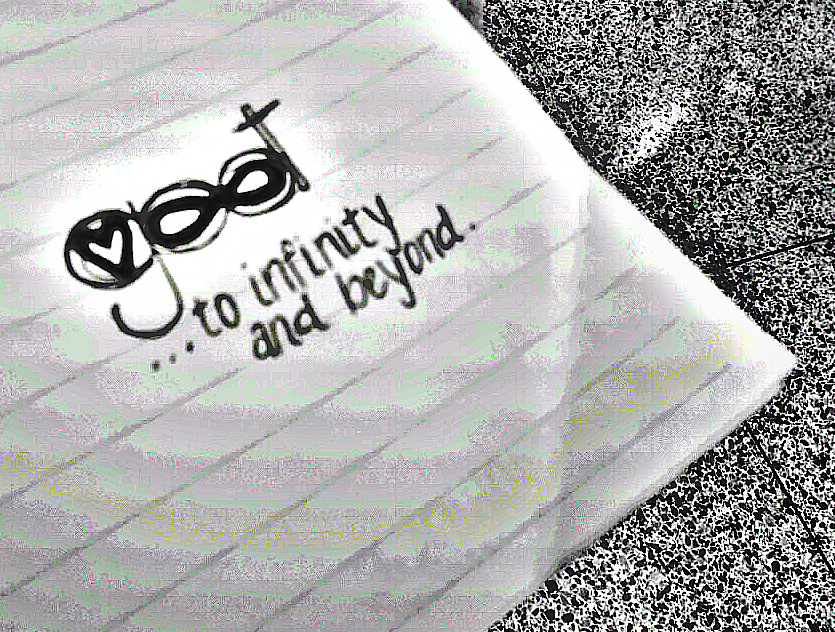 good
...to infinity
and beyond.